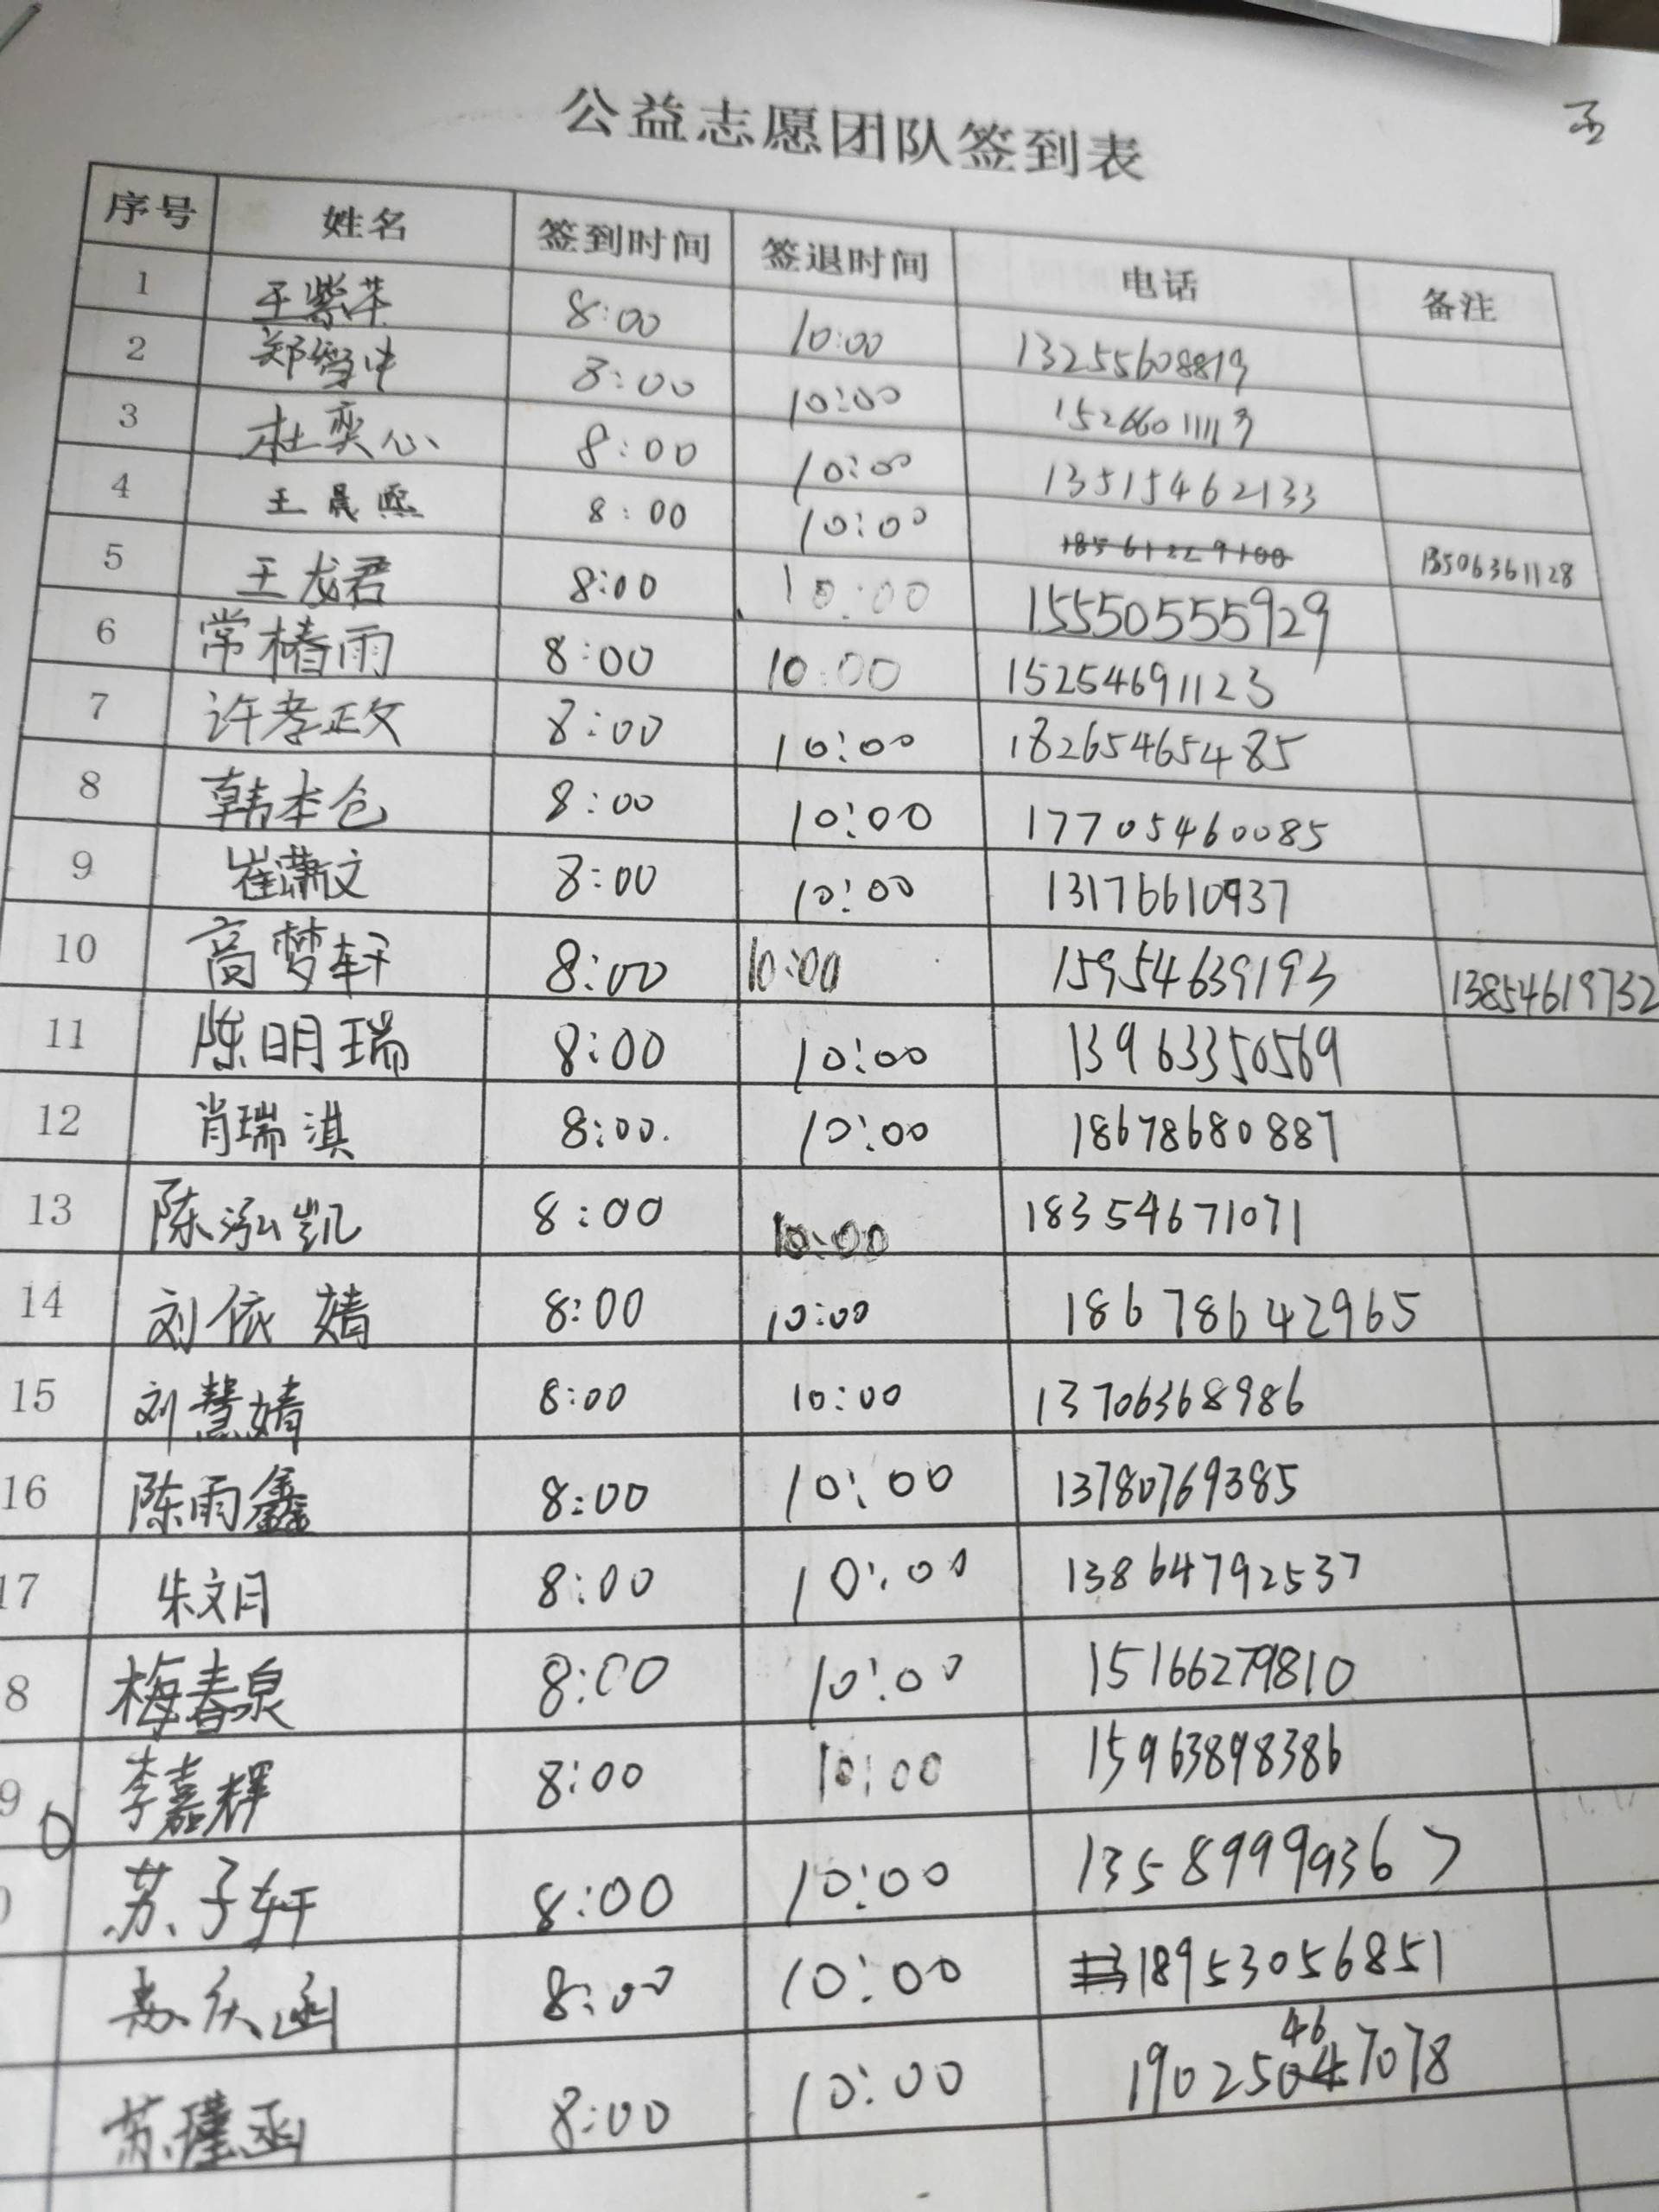 公益志愿团队签到表
序号 姓名 签到时间 签退时间 电话 备注
1 8:00 10:00 13255608819
2 8:00 10:00 15266011113
3 杜奕心 8:00 10:00 13515462133
4 王晨熙 8:00 10:00 18561229100 13506361128
5 王龙君 8:00 10:00 15550555929
6 常椿雨 8:00 10:00 15254691123
7 许孝政 8:00 10:00 18265465485
8 韩本仓 8:00 10:00 17705460085
9 崔潇文 8:00 10:00 13176610937
10 高梦轩 8:00 10:00 15954639193 13854619732
11 陈明瑞 8:00 10:00 13963350569
12 肖瑞淇 8:00 10:00 18678680887
13 陈泓凯 8:00 10:00 18354671071
14 刘依婧 8:00 10:00 18678642965
15 刘慧婧 8:00 10:00 13706368986
16 陈雨鑫 8:00 10:00 13780769385
17 朱文月 8:00 10:00 13864792537
8 梅春泉 8:00 10:00 15166279810
9 李嘉辉 8:00 10:00 15963898386
0 苏子轩 8:00 10:00 13589999367
苏庆函 8:00 10:00 18953056851
苏瑾函 8:00 10:00